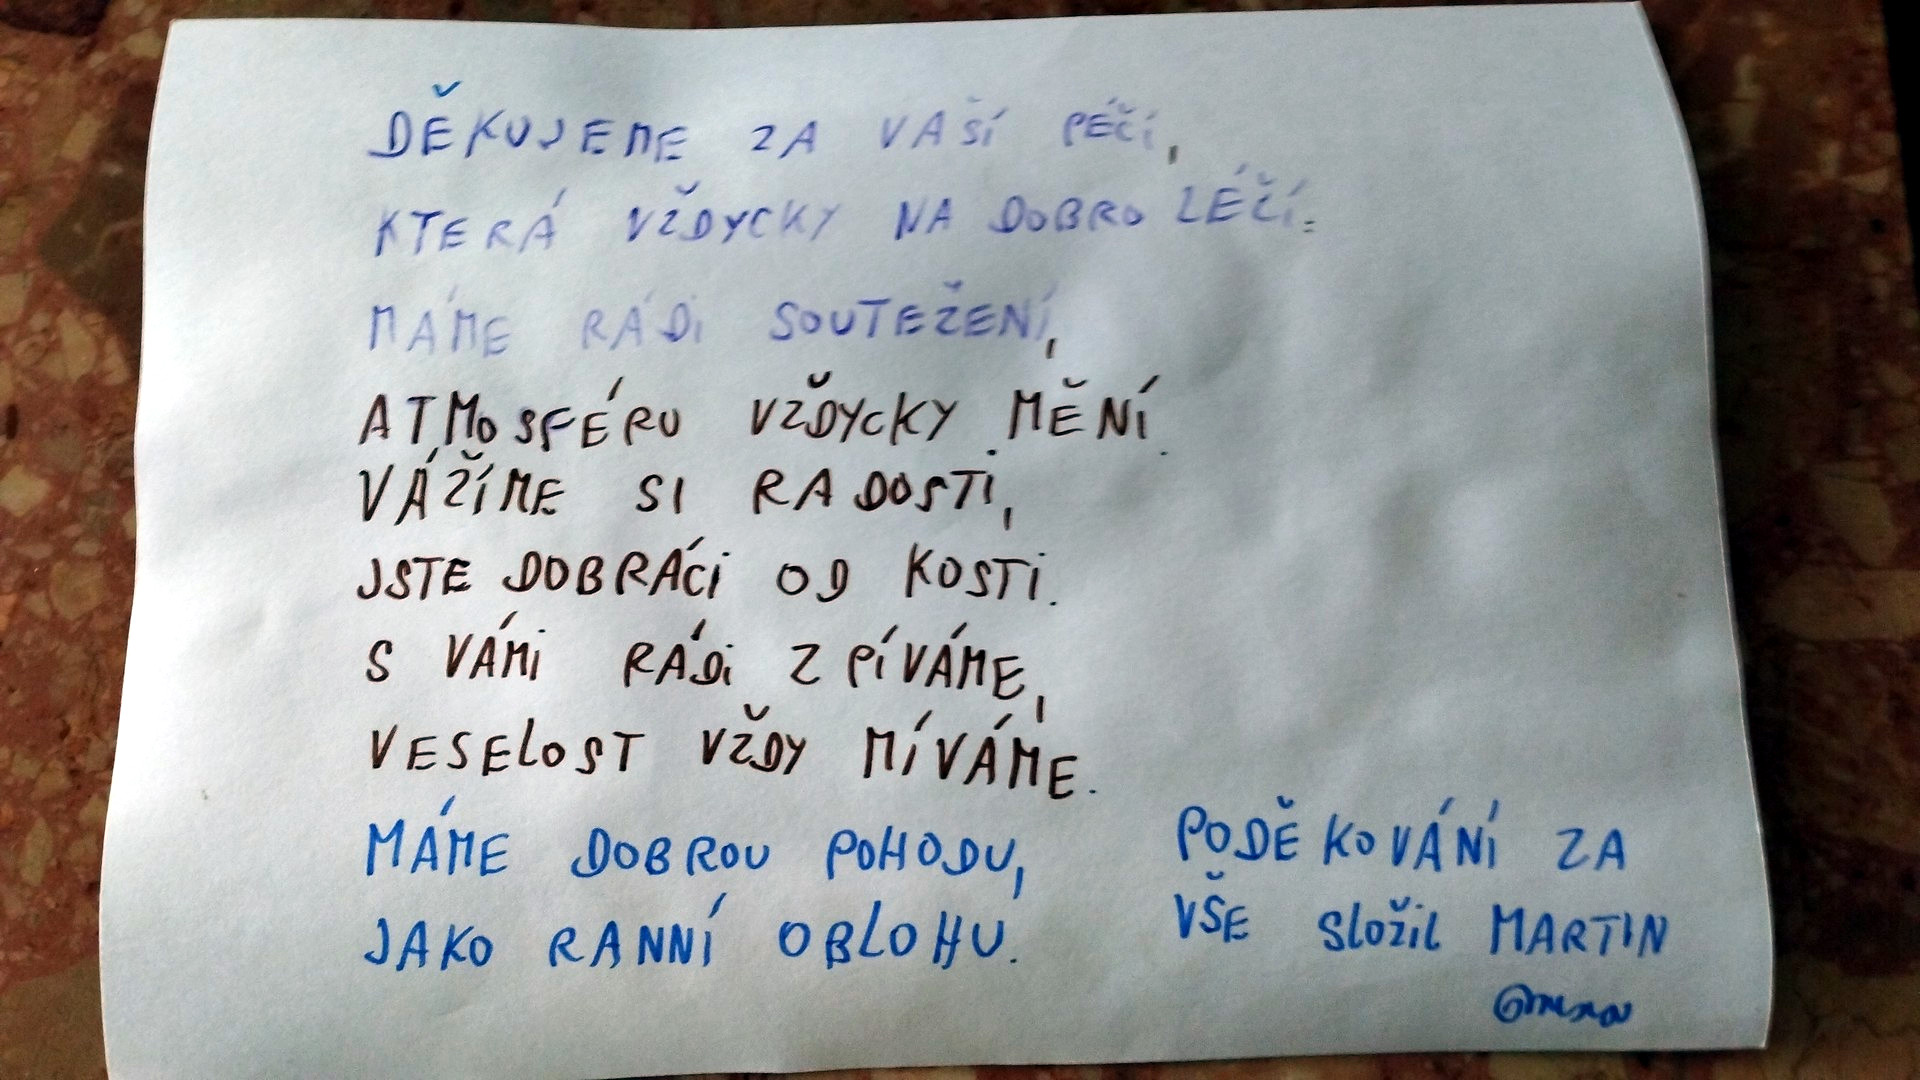 DĚKUJEME ZA VAŠÍ PÉČI,
KTERÁ VŽDYCKY NA DOBRO LÉČÍ.
MÁME RÁDI SOUTEŽENÍ,
ATMOSFÉRU VŽDYCKY MĚNÍ.
VÁŽÍME SI RADOSTI,
JSTE DOBRÁCI OD KOSTI.
S VÁMI RÁDI ZPÍVÁME,
VESELOST VŽDY MÍVÁME.
MÁME DOBROU POHODU,
JAKO RANNÍ OBLOHU.
PODĚKOVÁNÍ ZA
VŠE SLOŽIL MARTIN